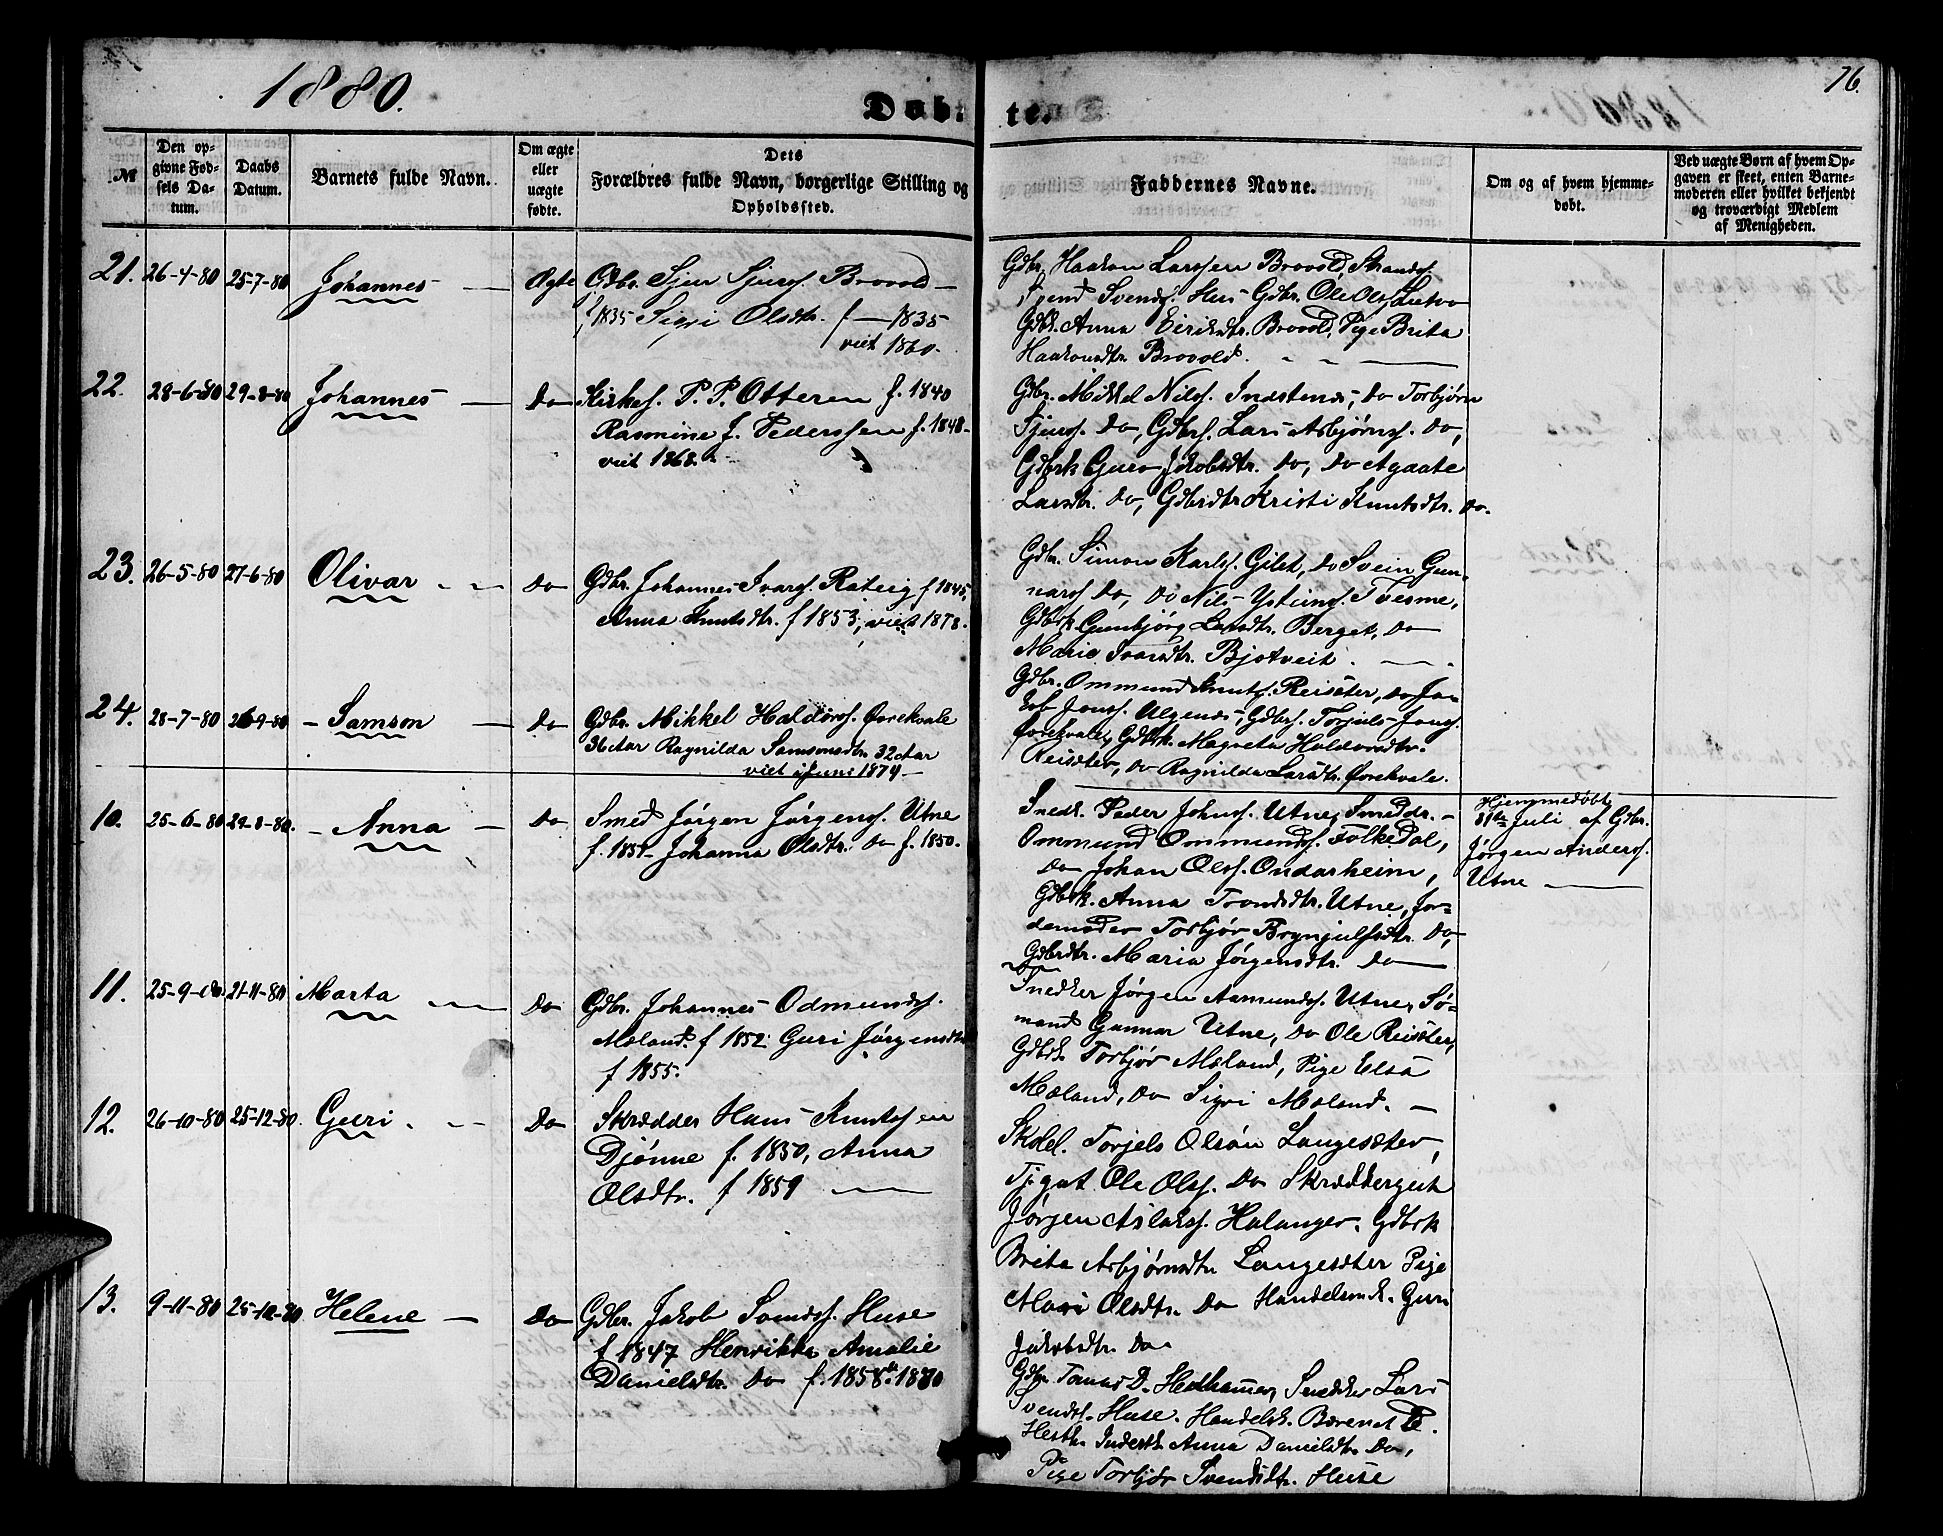 1880.
Døbte.
76.
№
Den opgivne Fødsels Datum.
Daabs Datum.
Barnets fulde Navn.
Om ægte eller uægte fødte.
Dets Forældres fulde Navn, borgerlige Stilling og Opholdssted.
Faddernes Navne.
Om og af hvem hjemmedøbt.
Ved uægte Børn af hvem Opgaven er skeet, enten Barnemoderen eller hvilket bekjendt og troværdigt Medlem af Menigheden.
21. 26-4-80 25-7-80 Johannes — Ægte Gdbr. Sjur Sjurs. Brovold —
f. 1835 Sigri Olsdtr. f — 1835
viet 1860.
Gdbr. Haakon Larssen Brovold, Strands.
Svend Svends. Hus Gdbr. Ole Ols. Lutro
Gdbk. Anna Eiriksdtr. Brovold, Pige Brita
Haakonsdtr. Brovold.
22. 28-6-80 29-8-80 Johannes — Do Kirkes. P. P. Otteren f. 1840
Rasmine f. Pederssen f. 1848
viet 1868.
Gdbr. Mikkel Nils. Indstenes, Do Torbjørn
Sjurs. Do, Gdbrs. Lars Asbjørns. Do,
Gdbrk Guro Jakobsdtr. Do, Do Agaate
Larsdtr. Do, Gdbrdtr Kristi Knutsdtr. Do.
23. 26-5-80 27-6-80 Olivar Do Gdbr. Johannes Ivars. Rateig f 1845,
Anna Knutsdtr. f 1853, viet 1878.
Gdbr. Simon Karls. Gilet, Do Svein Gun-
nars Do, Do Nils Ystuns. Tvesme,
Gdbrk Gunbjørg Larsdtr. Berget, Do
Marie Ivarsdtr. Bjotveit.
24. 28-7-80 26-9-80 — Samson — Do Gdbr. Mikkel Haldors. Øvrekvale
36 Aar Ragnilda Samsonsdtr. 32 Aar
viet i Juni 1874 —
Gdbr. Ommund Knuts. Reisæter, Do Ja-
kob Jons. Ulgenes, Gdbrs. Torjuls Jons.
Øvrekvale, Gdbrk. Magreta Haldorsdtr.
Reisæter, Do Ragnilda Larsdtr. Øvrekvale.
10. 25-6-80 29-8-80. — Anna — Do Smed Jørgen Jørgens. Utne
f. 1851 Johanna Olsdtr. Do f. 1850.
Snedk. Peder Johns. Utne, Smeddr. —
Ommund Ommunds. Folkedal,
Do Johan Ols. Ondarheim,
Gdbrk. Anna Trondsdtr. Utne, Jor-
demoder Torbjør Brynjulfsdtr. Do,
Gdbrdtr. Maria Jørgensdtr. Do
Hjemmedøbt
31te Juli af Gdbr.
Jørgen Anders.
Utne —
11. 25-9-80 21-11-80 Marta Do Gdbr. Johannes Odmunds.
Mæland. f 1852. Guri Jørgensdtr
f 1855.
Snedker Jørgen Aamunds. Utne, Sø-
mand Gunnar Utne, Do Ole Reisæter,
Gdbrk Torbjør Mæland, Pige Elsa
Mæland, Do Sigri Mæland. —
12. 26-10-80 25-12-80. Guri. Do Skrædder Hans Knutssen
Djønne f. 1850, Anna
Olsdtr. f 1859 —
Skolel. Torjels Olsøn Langesæter,
Tjgut Ole Ols. Do Skræddergut
Jørgen Aslaks. Halanger. Gdbrk
Brita Asbjørnsdtr Langesæter Pige
Mari Olsdtr. Do Handelsmdk. Guri
Jakobsdtr. Do
13. 9-11-80 25-12-80 Helene — Do Gdbr. Jakob Svends. Huse
f 1847 Henrikke Amalie
Danielsdtr. Do f. 1858. 1880
Gdbr. Tomas D. Hesthamer, Snedker Lars
Svends. Huse. Handelsk. Berent
Hesth. Inderstk Anna Danielsdtr. Do,
Pige Torbjør Svendsdtr. Huse